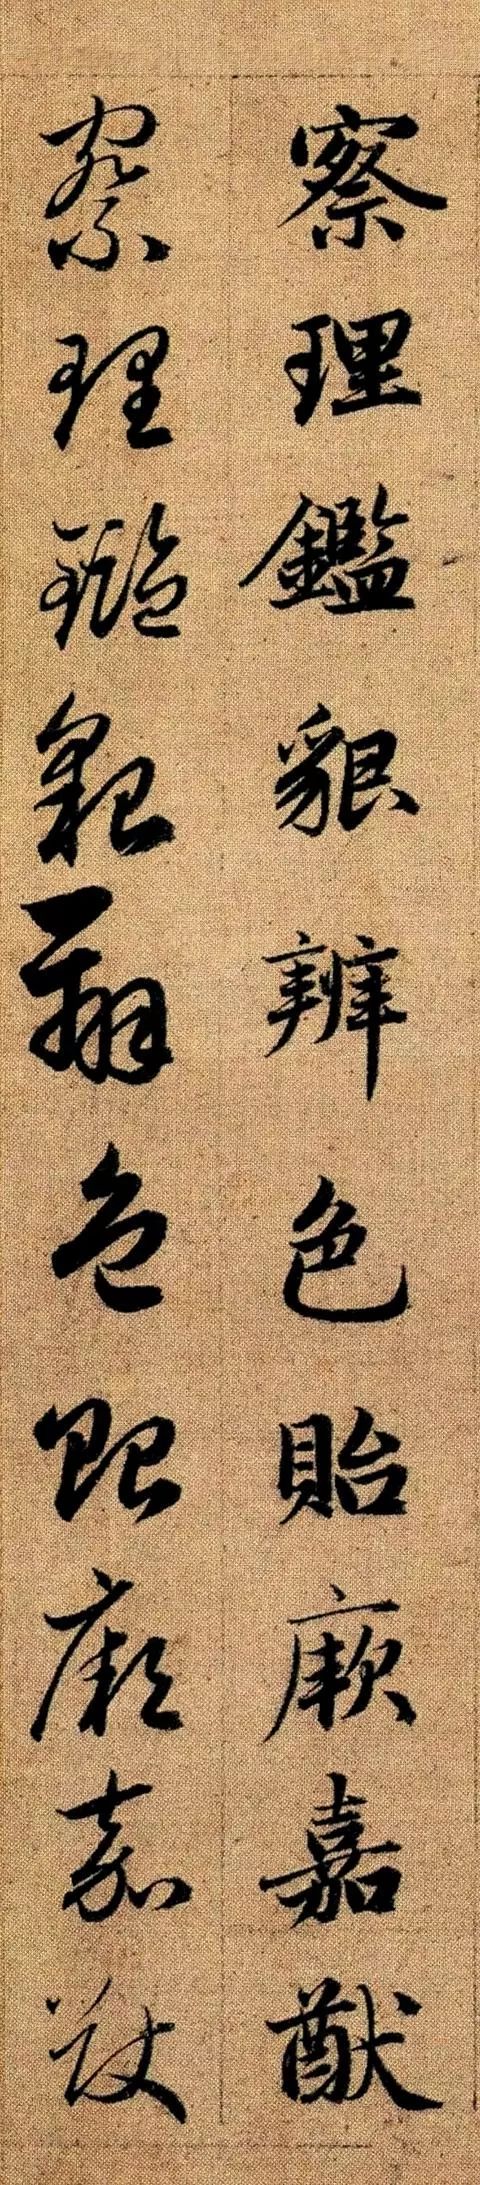 察理鑑貌辨色貽厥嘉猷
察理鑑貌辨色貽厥嘉猷